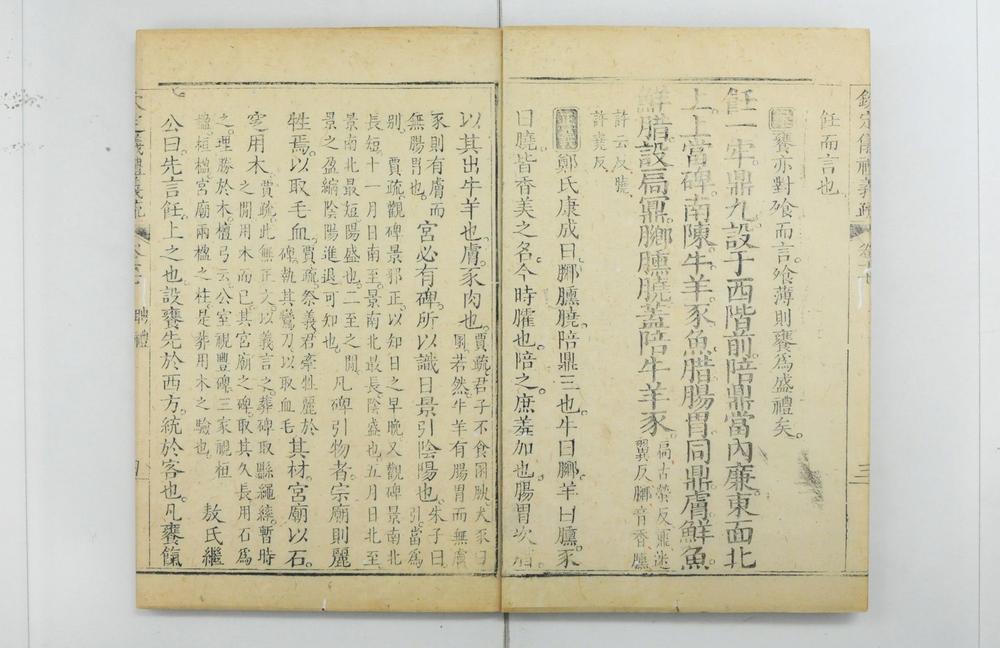 欽定儀禮義疏
三
飪而言也
饔亦對飧而言飧薄則饔爲盛禮矣。
飪一牢鼎九設于西階前陪鼎當內廉東面北
上。上當碑。南陳。牛羊豕魚腊腸胃同鼎。膚鮮魚。
鮮腊。設扃鼏。膷臐膮。蓋陪牛羊豕。
扃古熒反鼏迷
翼反膷音香臐
許云反膮
許堯反
正義鄭氏康成曰。膷臐膮。陪鼎三也。牛曰膷。羊曰臐。豕
曰膮。皆香美之名。今時臛也。陪之。庶羞加也。腸胃次
以其出牛羊也。膚。豕肉也。
賈疏君子不食圂腴犬豕曰
圂若然牛羊有腸胃而無膚
豕則有膚而
無腸胃也。
宮必有碑。所以識日景引陰陽也。
朱子曰
引當爲
別。賈疏觀碑景邪正。以知日之早晚又觀碑景南北
長短十一月日南至。景南北最長。陰盛也。五月日北至
景南北最短。陽盛也。二至之閒
景之盈縮。陰陽進退可知也。
凡碑引物者。宗廟則麗
牲焉。以取毛血。
賈疏祭義君牽牲麗於
碑執其鸞刀以取血毛
其材。宮廟以石。
窆用木。
賈疏此無正文。以義言之。葬碑取縣繩繂暫時
之閒用木而已其宮廟之碑。取其久長用石爲
之。理勝於木。檀弓云。公室視豐碑三家視桓
楹。桓楹宮廟兩楹之柱是葬用木之驗也。
敖氏繼
公曰。先言飪。上之也。設饔先於西方。統於客也。凡饔餼
聘禮